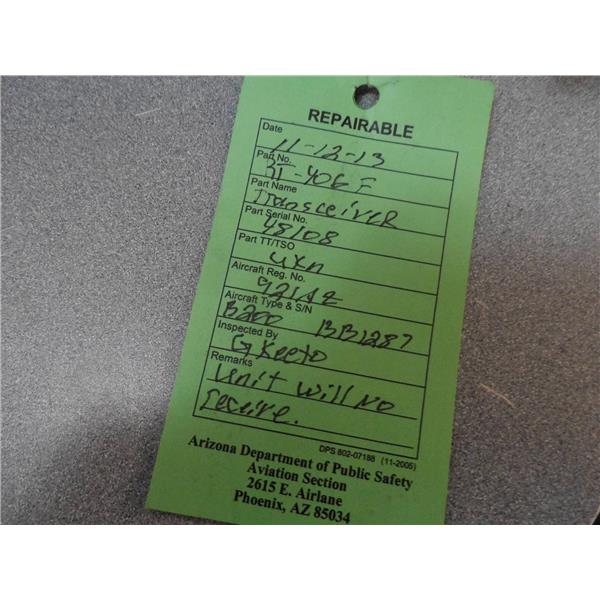 REPAIRABLE
Date
11-12-13
Part No.
RT-406F
Part Name
Transceiver
Part Serial No.
48108
Part TT/TSO
UKn
Aircraft Reg. No.
921AZ
Aircraft Type & S/N
B200 BB1287
Inspected By
G
Remarks
Unit Will No
receive.
DPS 802-07188 (11-2005)
Arizona Department of Public Safety
Aviation Section
2615 E. Airlane
Phoenix, AZ 85034